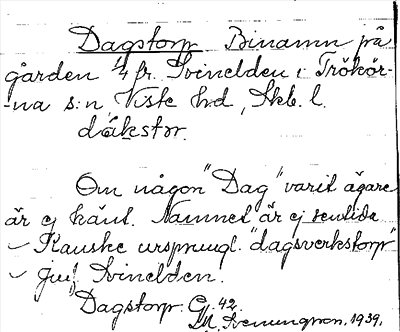 Dagstorp Binamn på
gården 1/4 fr. Svinelden i Trökör-
-na s:n, Viste hd, Skb. l.
dákstɷr.
Om någon "Dag" varit ägare
är ej känt. Namnet är ej sentida
– Kanske ursprungl. "dagsverkstorp"
– jmf Svinelden.
Dagstorp G. 42.
Svenungson. 1939.